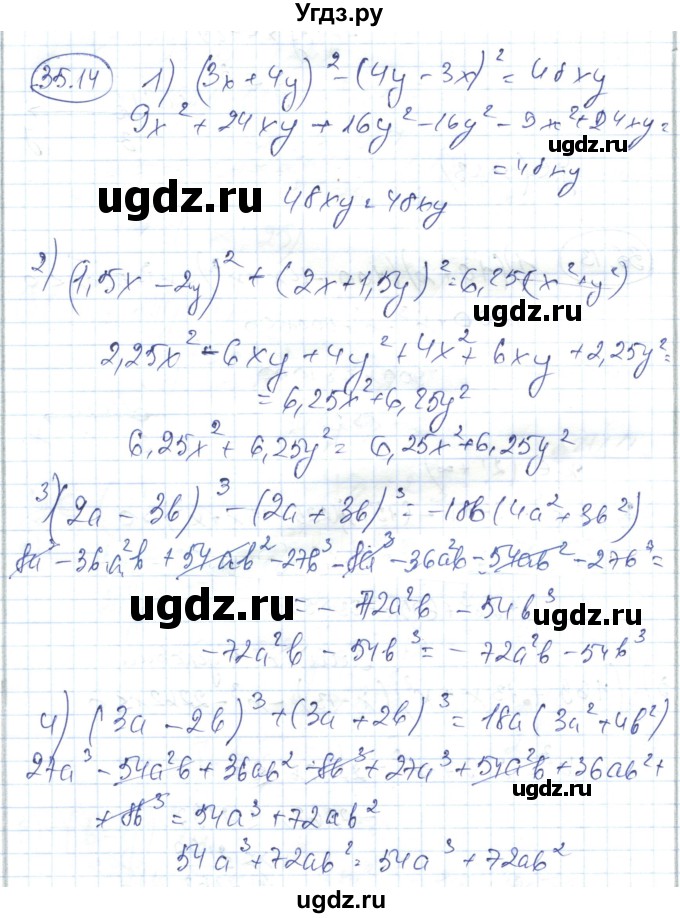 Угдз.ру
35.14 1) (3x + 4y)² - (4y - 3x)² = 48xy
9x² + 24xy + 16y² - 16y² - 9x² + 24xy =
= 48xy
ugdz.ru
48xy = 48xy
ugdz.ru
2) (1,5x - 2y)² + (2x + 1,5y)² = 6,25(x² + y²)
ugdz.ru
2,25x² - 6xy + 4y² + 4x² + 6xy + 2,25y² =
= 6,25x² + 6,25y²
6,25x² + 6,25y² = 6,25x² + 6,25y²
3) (2a - 3b)³ - (2a + 3b)³ = -18b(4a² + 3b²)
ugdz.ru
8a³ - 36a²b + 54ab² - 27b³ - 8a³ - 36a²b - 54ab² - 27b³ =
= - 72a²b - 54b³
ugdz.ru
ugdz.ru
-72a²b - 54b³ = - 72a²b - 54b³
4) (3a - 2b)³ + (3a + 2b)³ = 18a(3a² + 4b²)
27a³ - 54a²b + 36ab² - 8b³ + 27a³ + 54a²b + 36ab² +
ugdz.ru
+ 8b³ = 54a³ + 72ab²
54a³ + 72ab² = 54a³ + 72ab²
ugdz.ru